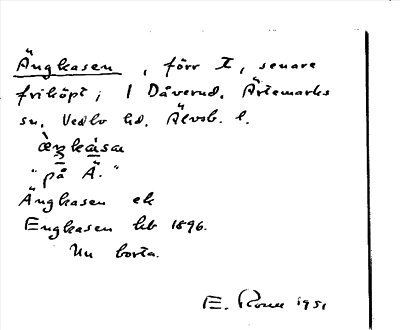 Ängkasen, förr T, senare
friköpt; 1 Dåverud. Ärtemarks
sn. Vedbo hd. Älvsb. l.
"på Ä."
Ängkasen ek
Engkasen hb 1896.
Nu borta.
E. 1951